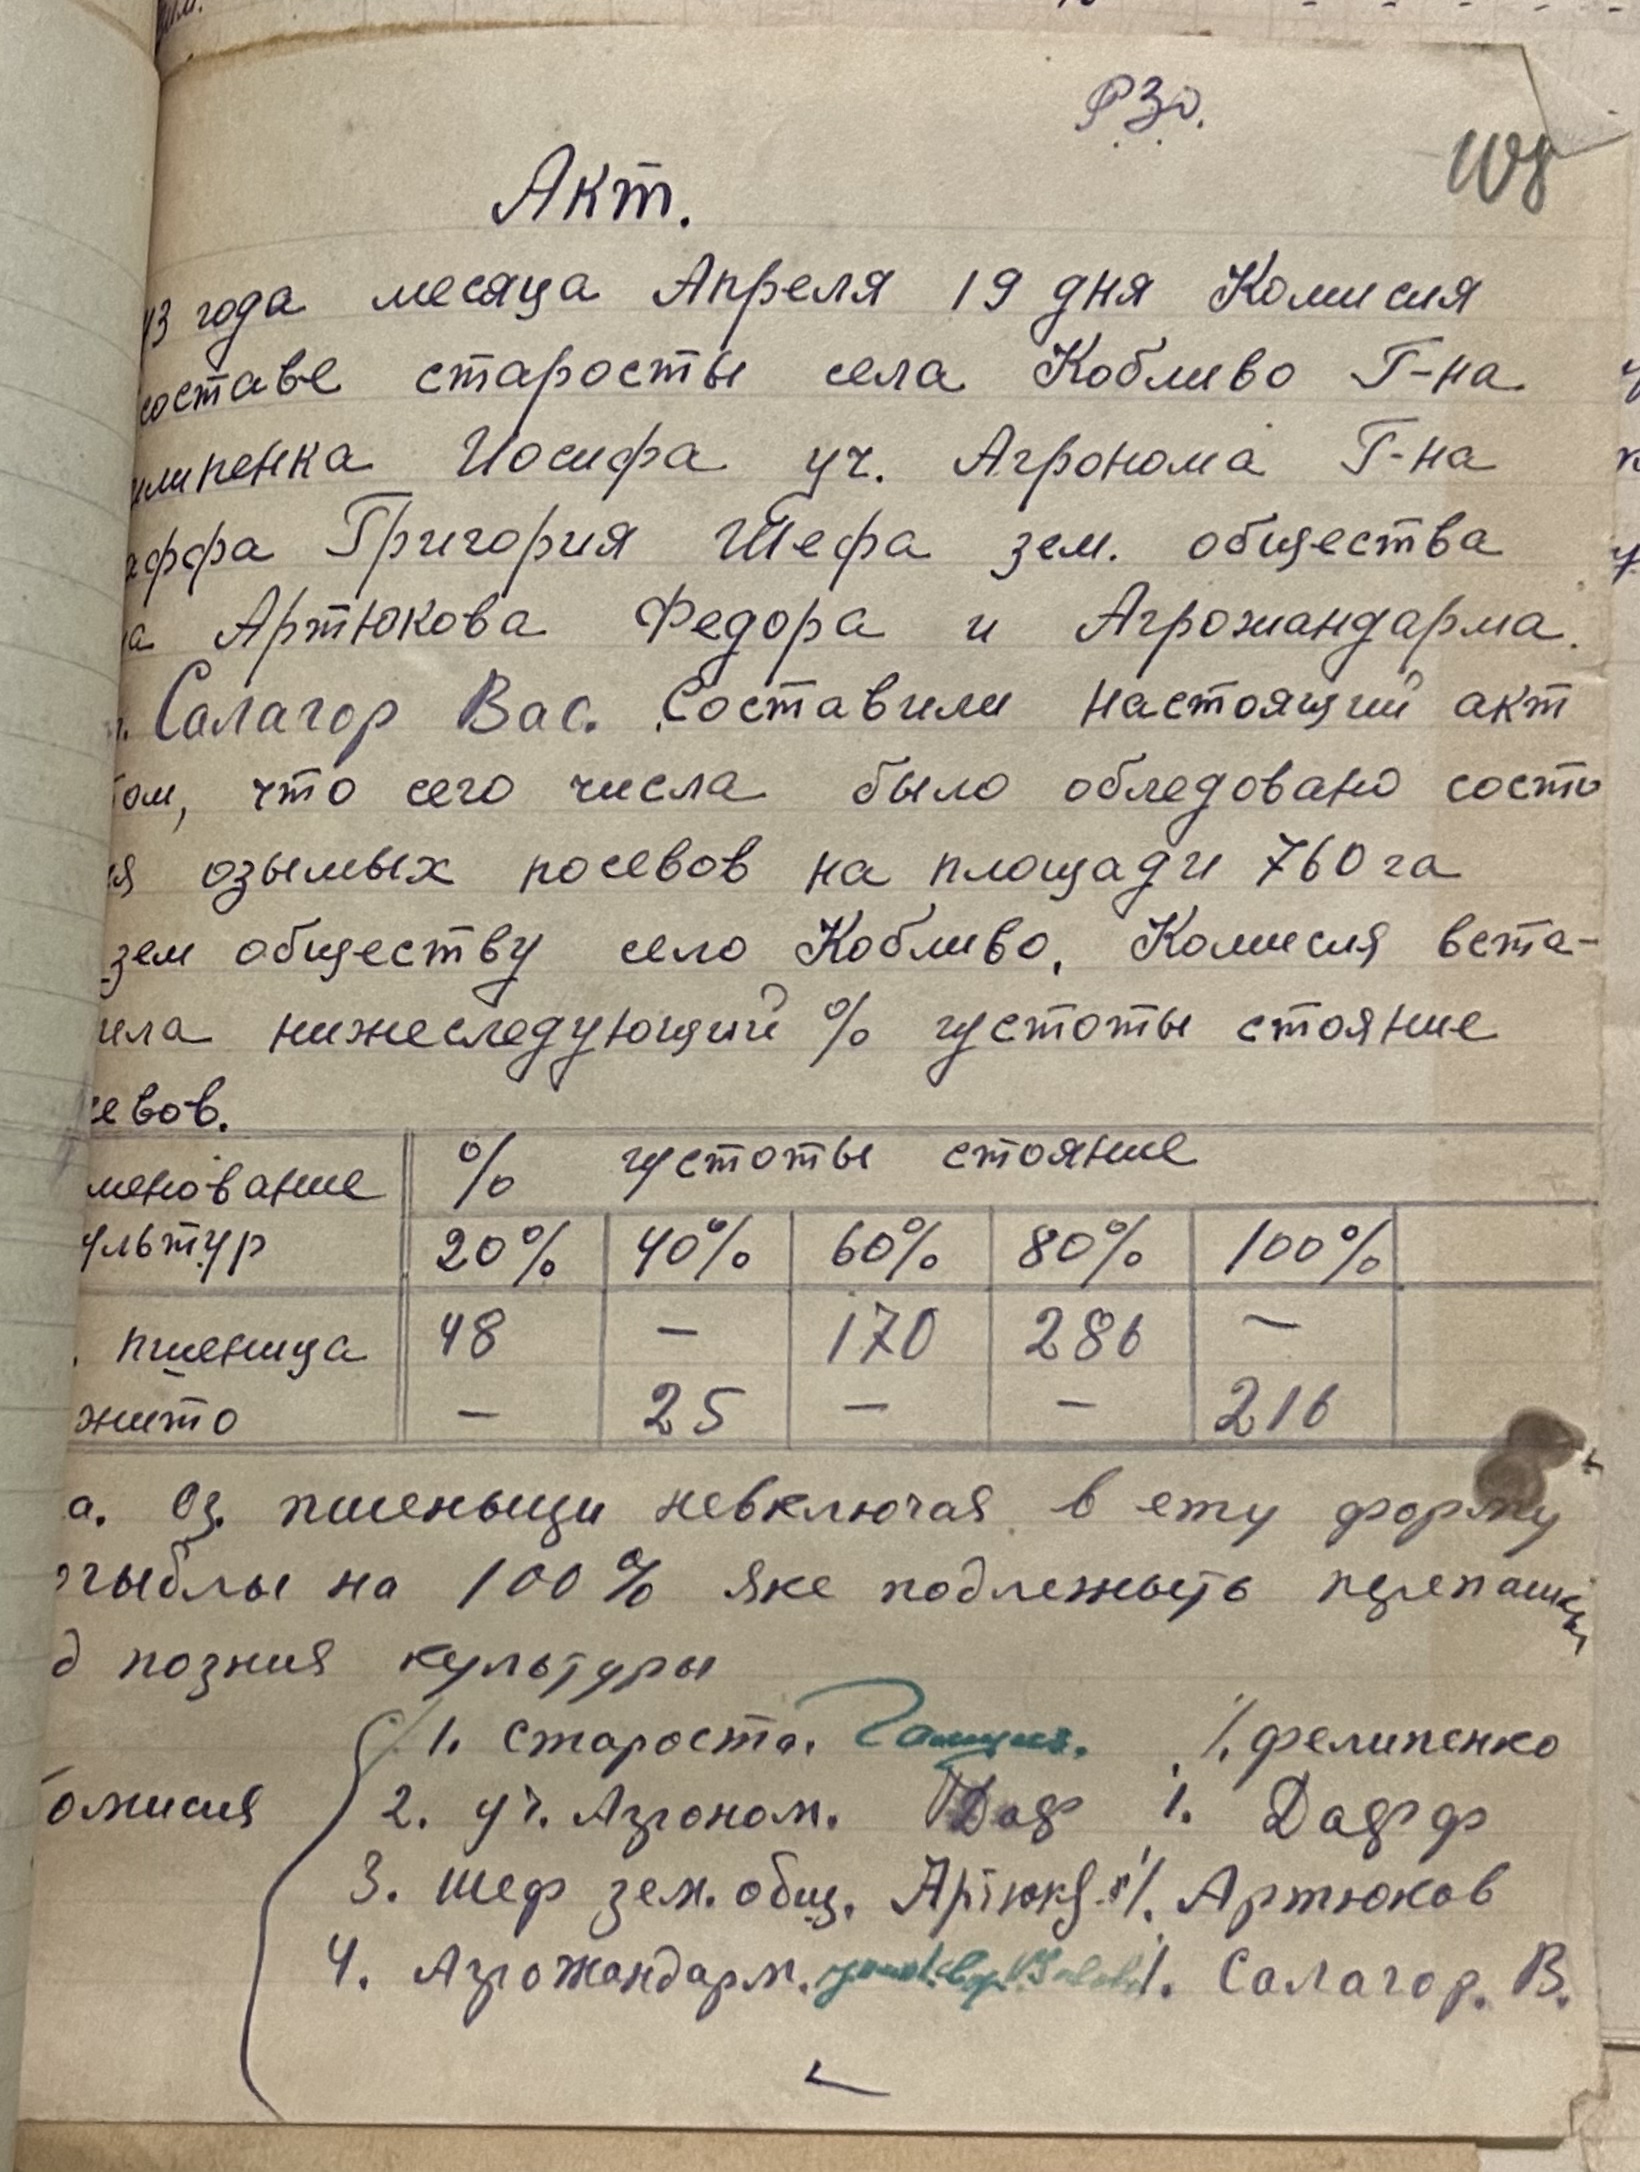 РЗО.
108
Акт.
43 года месяца Апреля 19 дня Комисия
составе старосты села Кобливо Г-на
илипенка Иосифа уч. Агронома Г-на
аффа Григория Шефа зем. общества
на Артюкова Федора и Агрожандарма.
Салагор Вас. Составили настоящий акт
том, что сего числа было обледовано состо
ия озымых посевов на площади 760 га
зем обществу село Кобливо. Комисия вста-
вила нижеследующий % густоты стояние
севов.
менование % густоты стояние
ультур 20% 40% 60% 80% 100%
пшеница 48 — 170 286 —
жито — 25 — — 216
а. Оз. пшеныци невключая в ету форму
огыблы на 100% яке подлежыть перепашки
д позния культуры
1. Староста. /. Фелипенко
омисия 2. уч. Агроном. Даф /. Дафф
3. Шеф зем. общ. Артюков /. Артюков
4. Агрожандарм. /. Салагор. В.